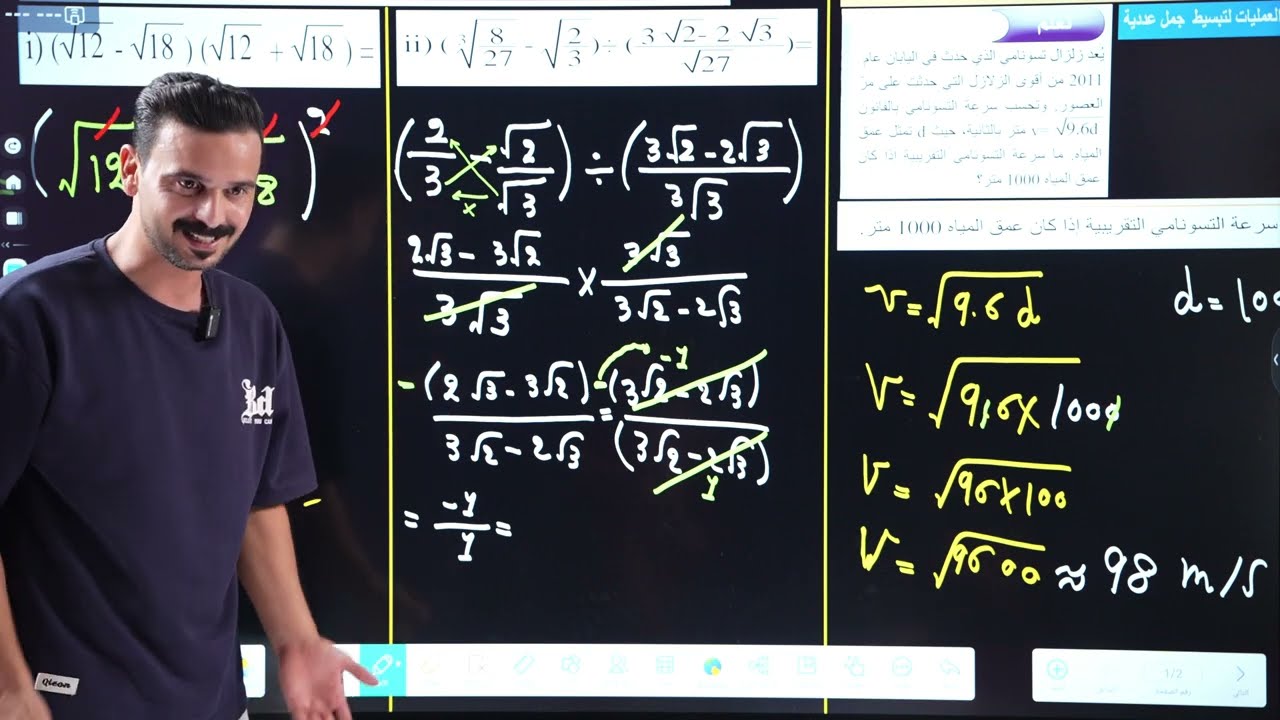 i) (√12 - √18 ) (√12 + √18 ) =
(√12 8)²
ii) ( ∛8/27 - √2/3 ) ÷ ( 3 √2 - 2 √3 / √27 ) =
(2/3 - √2/√3) ÷ (3√2 - 2√3 / 3√3)
x
2√3 - 3√2 / 3√3 × 3√3 / 3√2 - 2√3
- (2√3 - 3√2) / 3√2 - 2√3 = -(3√2 - 2√3) / (3√2 - 2√3)
-1
1
= -1/1 =
العمليات لتبسيط جمل عددية
تعلم
يُعد زلزال تسونامي الذي حدث في اليابان عام
2011 من أقوى الزلازل التي حدثت على مرّ
العصور. وتحسب سرعة التسونامي بالقانون
v= √9.6d متر بالثانية، حيث d تمثل عمق
المياه. ما سرعة التسونامي التقريبية اذا كان
عمق المياه 1000 متر؟
سرعة التسونامي التقريبية اذا كان عمق المياه 1000 متر.
v = √9.6 d
d = 100
V = √9.6 × 1000
V = √96 × 100
V = √9600 ≈ 98 m/s
1/2
رقم الصفحة
التالي
Qleon